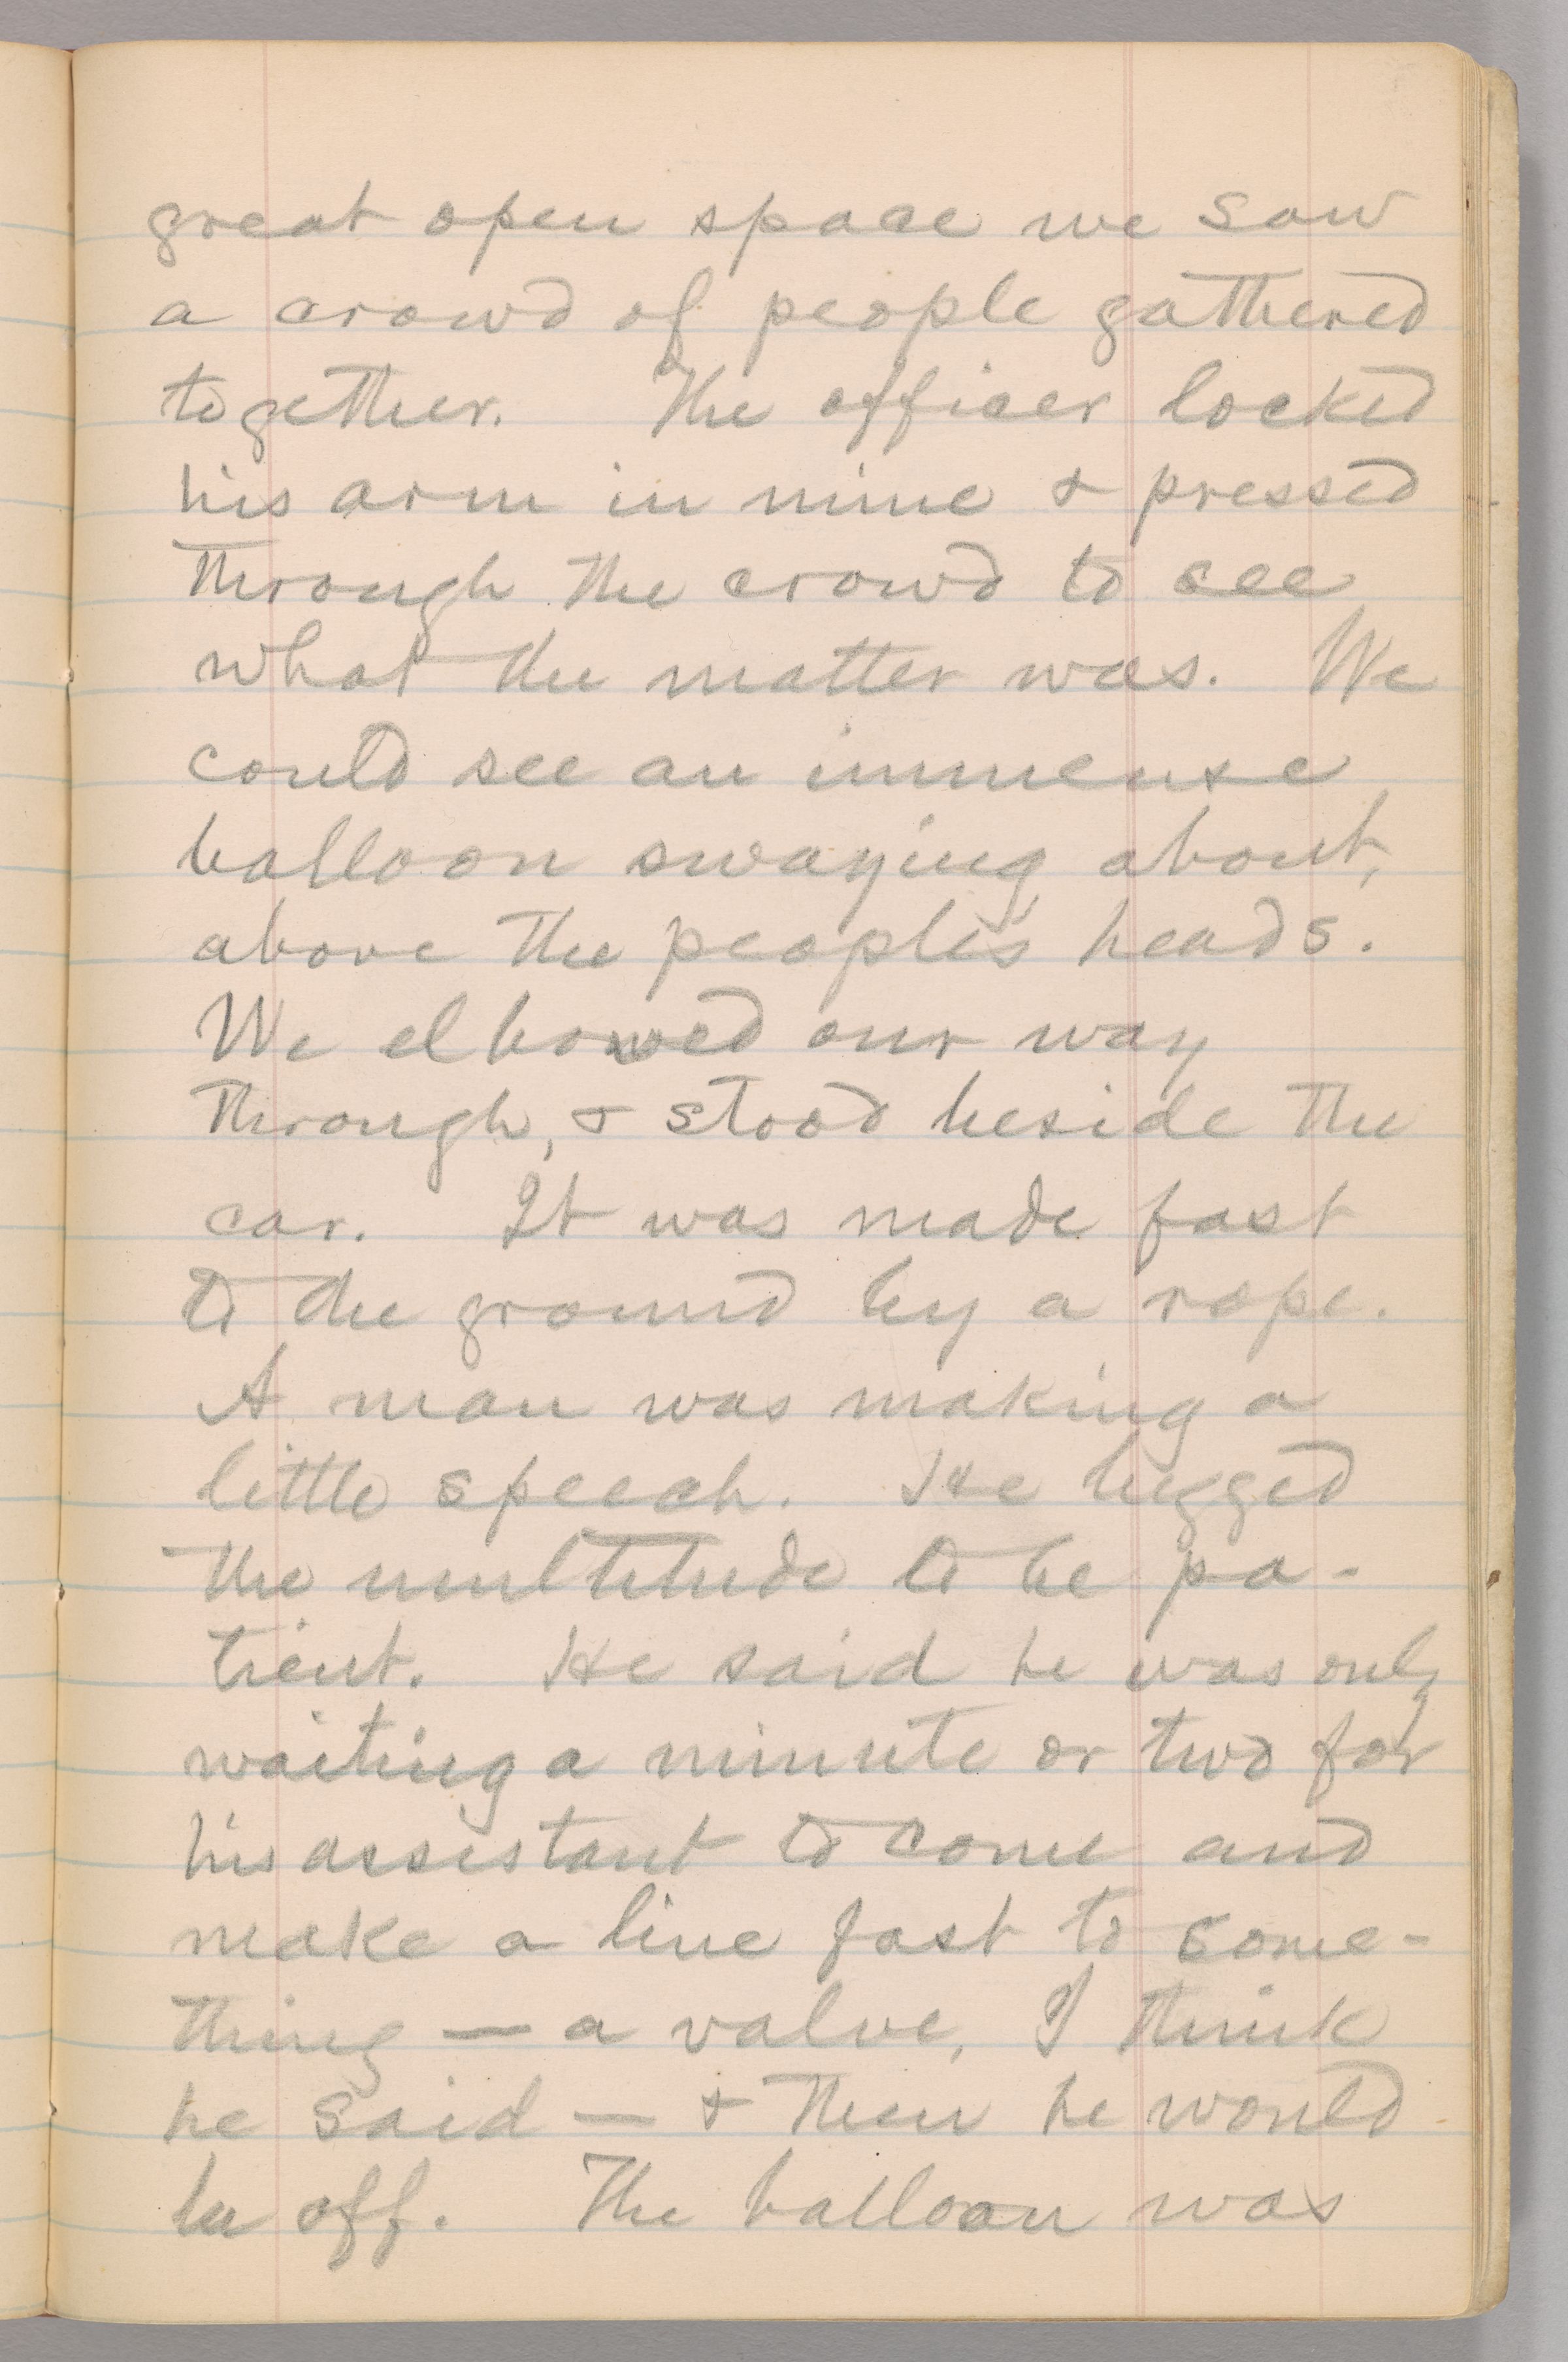 great open space we saw
a crowd of people gathered
together. The officer locked
his arm in mine & pressed
through the crowd to see
what the matter was. We
could see an immense
balloon swaying about,
above the people's heads.
We elbowed our way
through, & stood beside the
car. It was made fast
to the ground by a rope.
A man was making a
little speech. He begged
the multitude to be pa-
tient. He said he was only
waiting a minute or two for
his assistant to come and
make a line fast to some-
thing — a valve, I think
he said — & then he would
be off. The balloon was